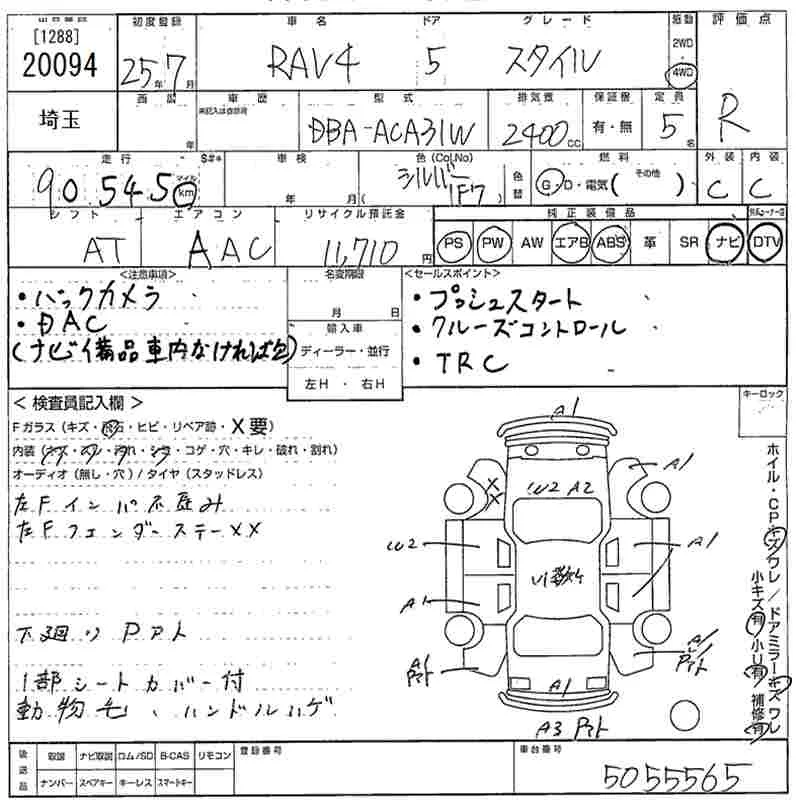 [1288]
20094
初度登録 車名 ドア グレード 駆動 評価点
25年7月 RAV4 5 スタイル 2WD 4WD
埼玉
車歴 型式 排気量 保証書 定員
未記入は自家用
年 DBA-ACA31W 2400cc 有・無 5名 R
走行 S#* 車検 色(Col.No) 燃料 外装 内装
90,545 マイル km 年 月( シルバー 1F7 ) 色替 G・D・電気( その他 ) C C
シフト エアコン リサイクル預託金 純正装備品
AT AAC 11,710円 PS PW AW エアB ABS 革 SR ナビ DTV
<注意事項> 名変期限 <セールスポイント>
・バックカメラ ・プッシュスタート
・DAC 月 日 ・クルーズコントロール
(ナビ備品車内なければ欠) 輸入車 ・TRC
ディーラー・並行
左H・右H
<検査員記入欄> キーロック
Fガラス(キズ・飛石・ヒビ・リペア跡・X要)
内装(キズ・スレ・汚れ・シミ・コゲ・穴・キレ・破れ・割れ)
オーディオ(無し・穴)/タイヤ(スタッドレス)
左Fインパネ歪み
左FフェンダーステーXX
下廻りPアト
1部シートカバー付
動物毛、ハンドルハゲ
A1
A1
X
X
W2 A2
W2
A1
A1
A1
Pアト
A1
Pアト
A1
A3 Pアト
ホイル・CPキズワレ/ドアミラーキズワレ
小キズ有 小U有 補修有
後送品 取説 ナビ取説 ロム/SD B-CAS リモコン 登録番号 車台番号
ナンバー スペアキー キーレス スマートキー 5055565